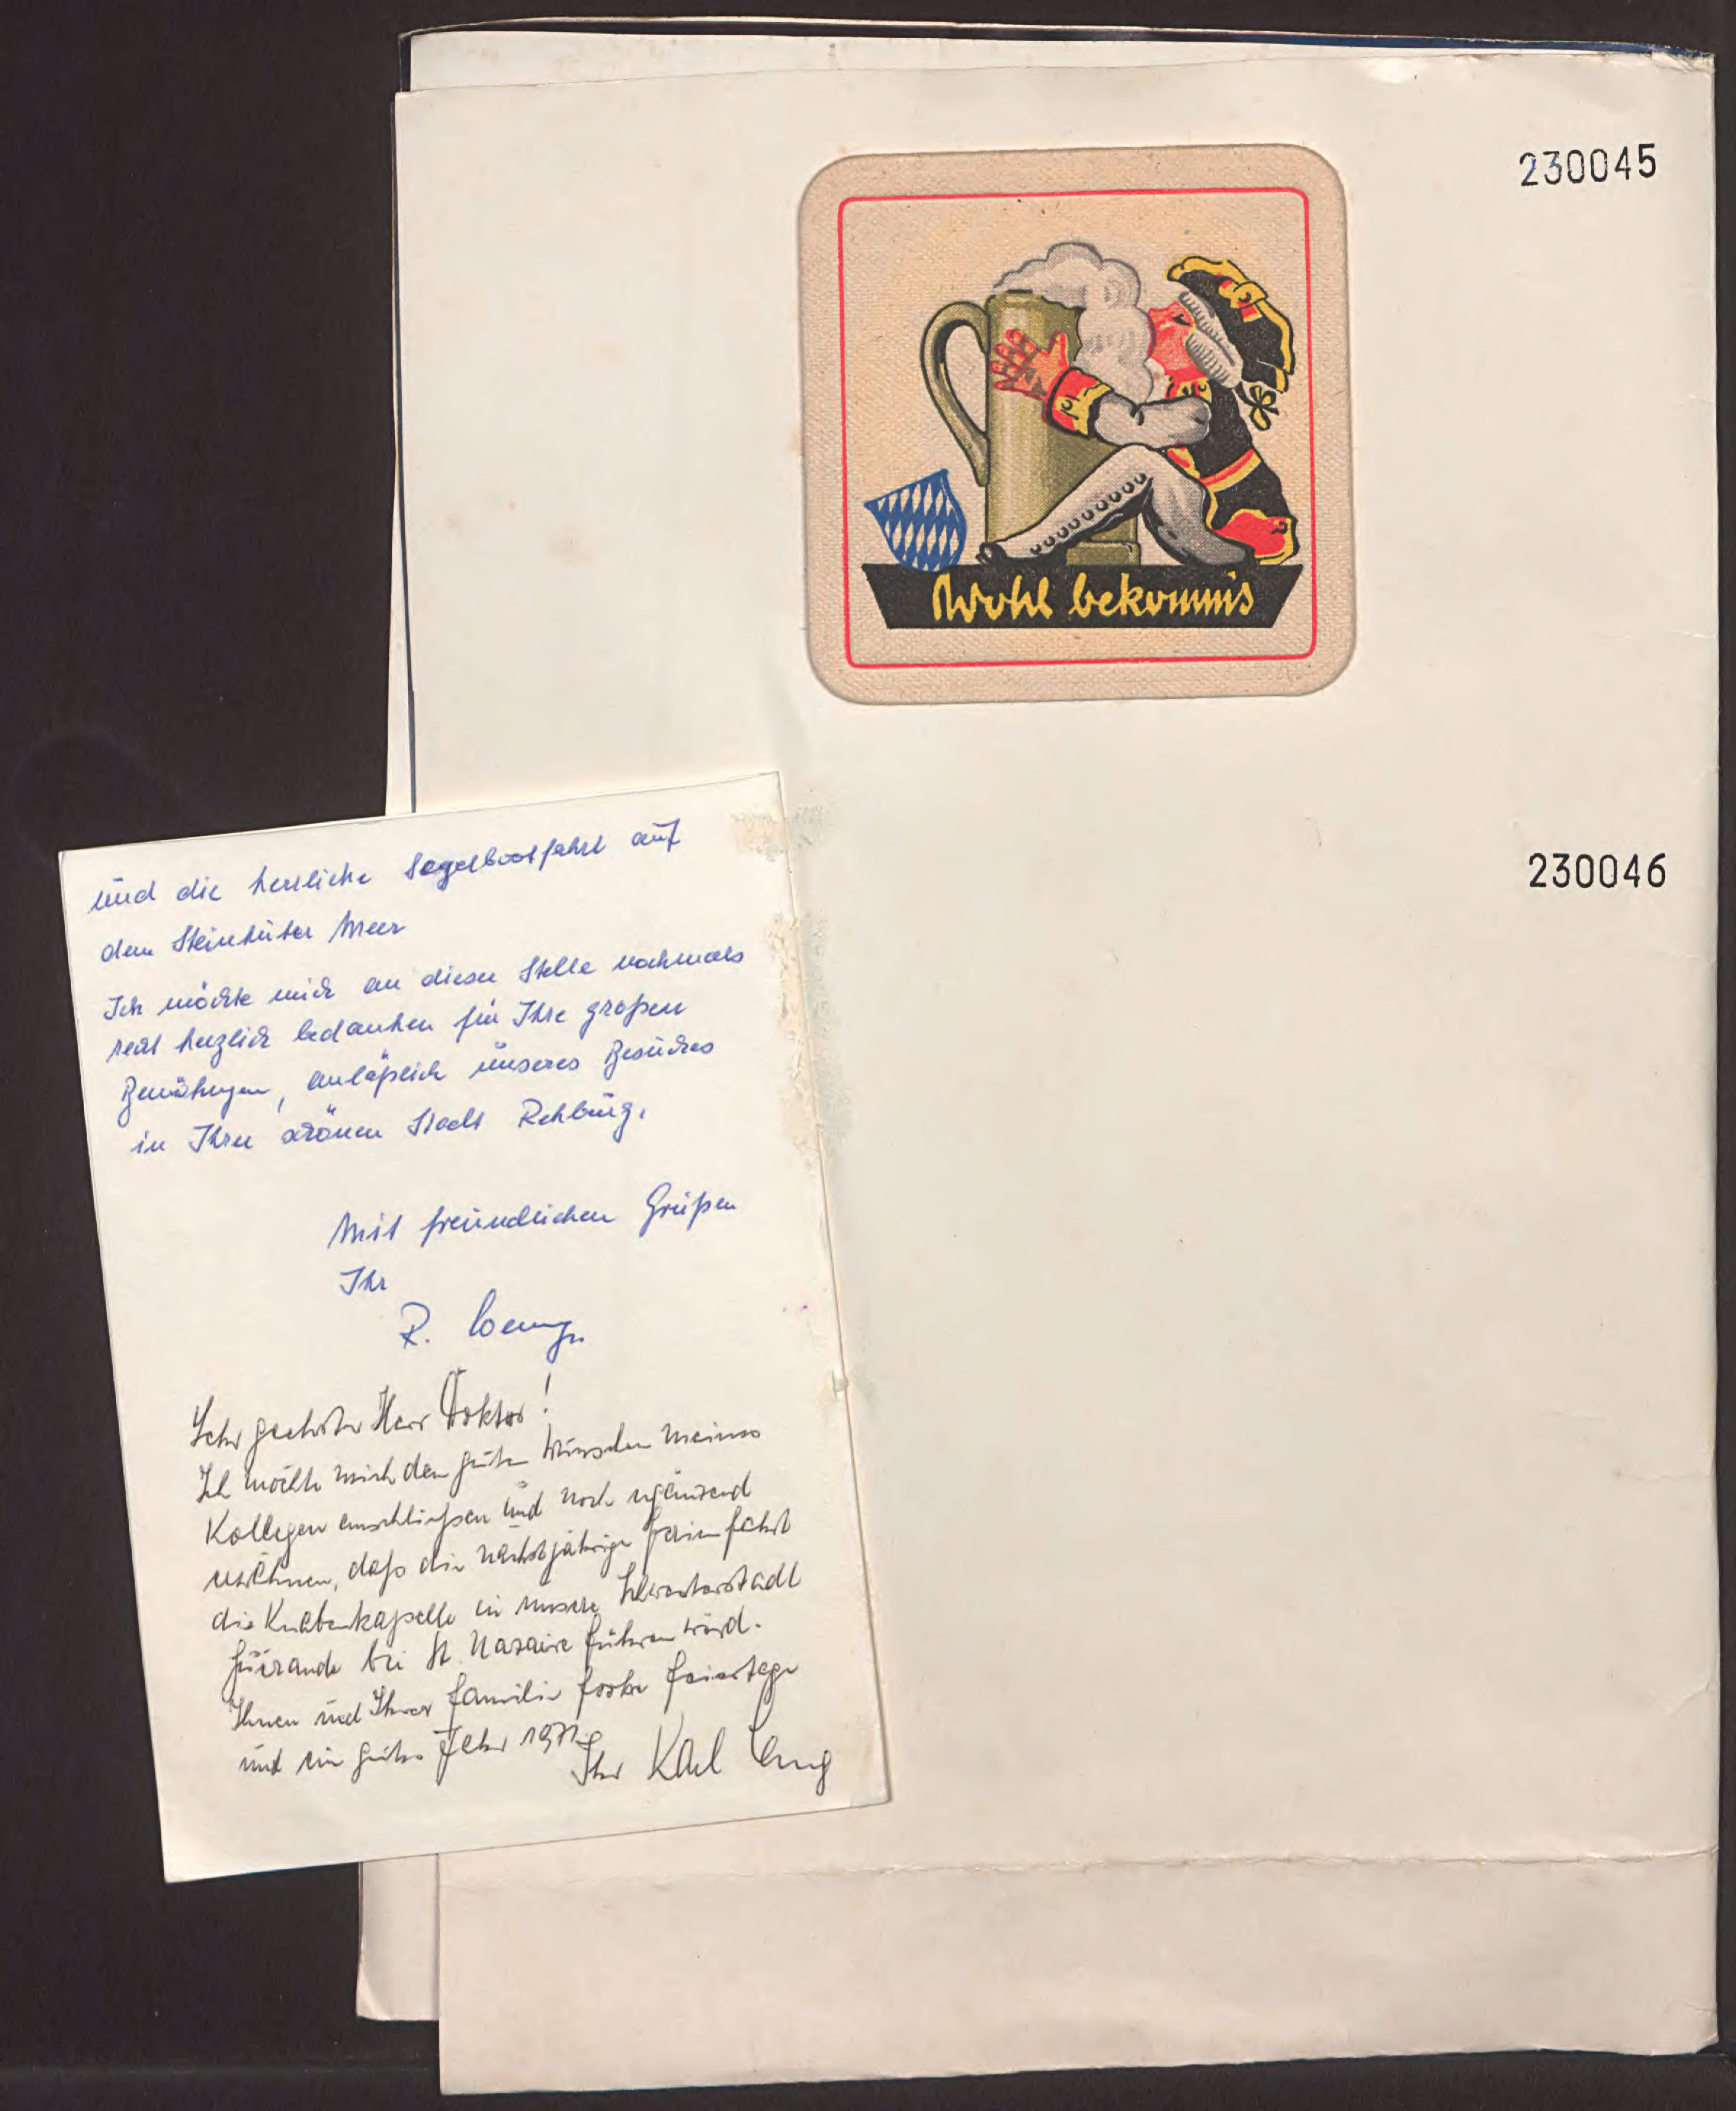 230045
Wohl bekomms
230046
und die herrliche Segelbootfahrt auf
dem Steinhuder Meer
Ich möchte mich an dieser Stelle nochmals
recht herzlich bedanken für Ihre großen
Bemühungen, anläßlich unseres Besuches
in Ihrer schönen Stadt Rehburg.
Mit freundlichen Grüßen
Ihr
R.
Sehr geehrter Herr Doktor!
Ich möchte mich den guten Wünschen meines
Kollegen anschließen und noch ergänzend
erwähnen, daß die nächstjährige Ferienfahrt
die Knabenkapelle in unsere
Guérande bei St. Nazaire führen wird.
Ihnen und Ihrer Familie frohe Feiertage
und ein gutes Jahr 1971
Ihr Karl